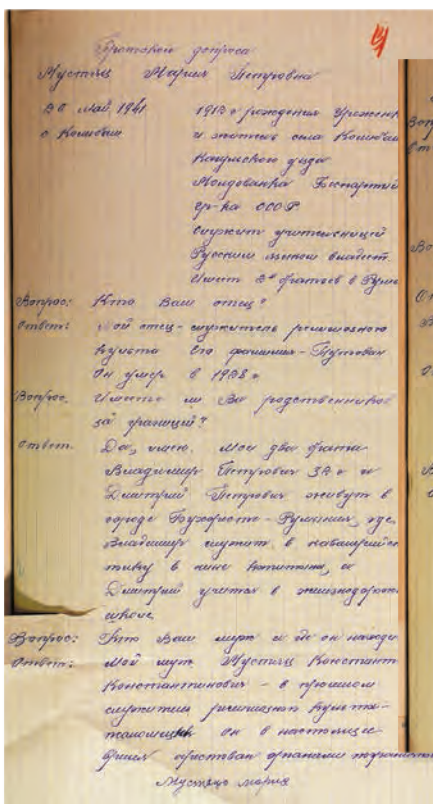 Протокол допроса
Мустяц Мария Петровна
30 май 1941
1913 г рождения Урожен
и житель села
уезда
Молдованка Беспартий
гр-ка СССР
служит учительницей
Русским языком владеет.
Имеет 2х братьев в Рум
Вопрос: Кто Ваш отец?
Ответ: Мой отец - служитель религиозного
культа Его фамилия -
Он умер в 1938 г
Вопрос. Имеете ли Вы родственников
за границей?
Ответ. Да, имею. Мои два брата
Владимир Петрович 32 г и
Дмитрий Петрович живут в
городе Бухаресте - Румынии, где
Владимир служит в
в чине капитана, а
Дмитрий учится в железнодорож
школе
Вопрос: Кто Ваш муж и где он находи
Ответ: Мой муж Мустяц Констант
Константинович - в прошлом
служитель религиозного культа -
он в настоящее
время арестован органами
Мустяцэ мария